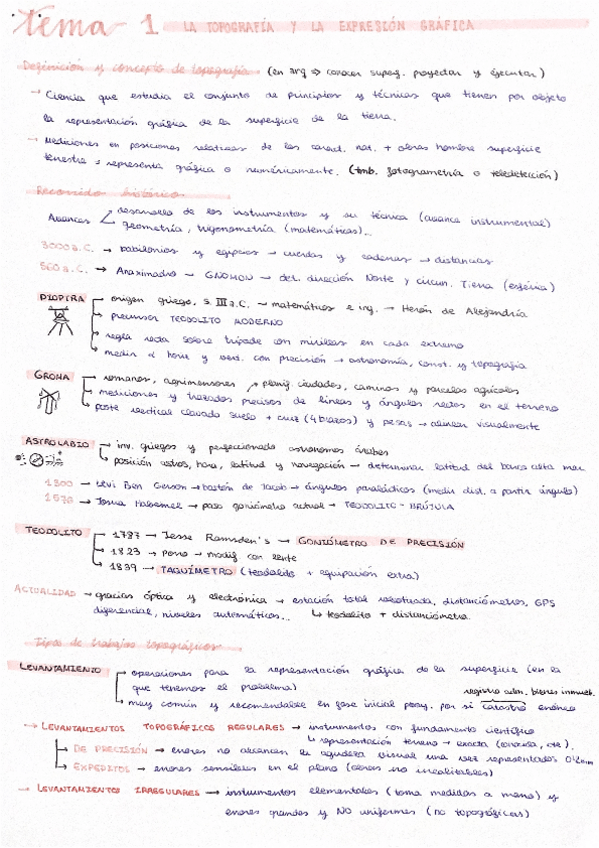 tema 1 LA TOPOGRAFÍA Y LA EXPRESIÓN GRÁFICA
Definición y concepto de topografía (en arq => conocer superf. proyectar y ejecutar)
→ Ciencia que estudia el conjunto de principios y técnicas que tienen por objeto
la representación gráfica de la superficie de la tierra.
→ Mediciones en posiciones relativas de los caract. nat. + obras hombre superficie
terrestre = representa gráfica o numéricamente. (tmb. fotogrametría o teledetección)
Recorrido histórico
Avances desarrollo de los instrumentos y su técnica (avance instrumental)
geometría, trigonometría (matemáticas)...
3000 a.C. → babilonios y egipcios → cuerdas y cadenas → distancias
560 a.C. → Anaximadro → GNOMON → det. dirección Norte y circun. Tierra (esférica)
DIOPTRA origen griego, s. III a.C. → matemáticas e ing. → Herón de Alejandría
precursor TEODOLITO MODERNO
regla recta sobre trípode con mirillas en cada extremo
medir α horiz y vert. con precisión → astronomía, const. y topografía
GROMA romanos, agrimensores planif. ciudades, caminos y parcelas agrícolas
mediciones y trazados precisos de líneas y ángulos rectos en el terreno
poste vertical clavado suelo + cruz (4 brazos) y pesas → alinear visualmente
ASTROLABIO inv. griegos y perfeccionado astrónomos árabes
posición astros, hora, latitud y navegación → determinar latitud del barco alta mar
1300 → Levi Ben Gerson → bastón de Jacob → ángulos paralácticos (medir dist. a partir ángulo)
1576 → Josua Habermel → paso goniómetro actual → TEODOLITO - BRÚJULA
TEODOLITO 1787 → Jesse Ramsden's → GONIÓMETRO DE PRECISIÓN
1823 → porro → modif. con lente
1839 → TAQUÍMETRO (teodolito + equipación extra)
ACTUALIDAD → gracias óptica y electrónica → estación total robotizada, distanciómetros, GPS
diferencial, niveles automáticos... ↳ teodolito + distanciómetro
Tipos de trabajos topográficos
LEVANTAMIENTO operaciones para la representación gráfica de la superficie (en la
que tenemos el problema) registro adm. bienes inmueb.
muy común y recomendable en fase inicial proy. por si catastro erróneo
→ LEVANTAMIENTOS TOPOGRÁFICOS REGULARES → instrumentos con fundamento científico
↳ representación terreno → exacta
DE PRECISIÓN → errores no alcanzan la agudeza visual una vez representados 0'2mm
EXPEDITOS → errores sensibles en el plano
→ LEVANTAMIENTOS IRREGULARES → instrumentos elementales (toma medidas a mano) y
errores grandes y NO uniformes (no topográficos)